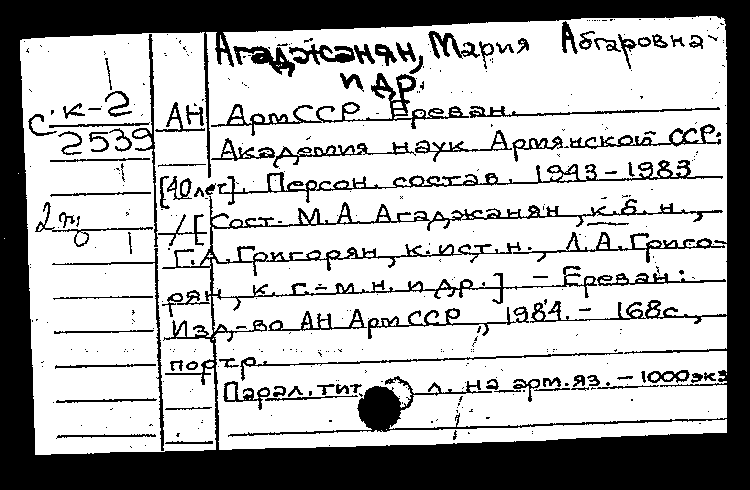 Агаджанян, Мария Абгаровна
и др.
С: к-2
2539
АН АрмССР. Ереван.
Академия наук Армянской ССР:
[40 лет]. Персон. состав. 1943-1983
/[Сост. М.А. Агаджанян, к.б.н.,
Г.А. Григорян, к.ист.н., Л.А. Григо-
рян, к. г.-м.н. и др.] - Ереван:
Изд-во АН АрмССР, 1984. - 168с.,
портр.
Парал. тит. л. на арм.яз. - 1000экз